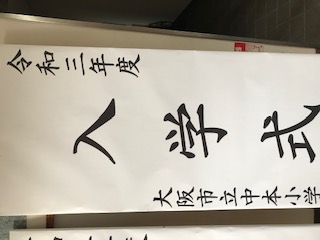 令和三年度
入学式
大阪市立中本小学